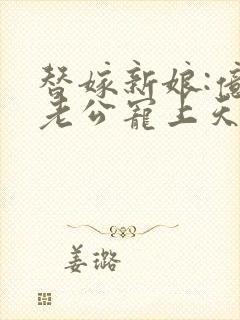 替嫁新娘:億
老公寵上天
姜璐